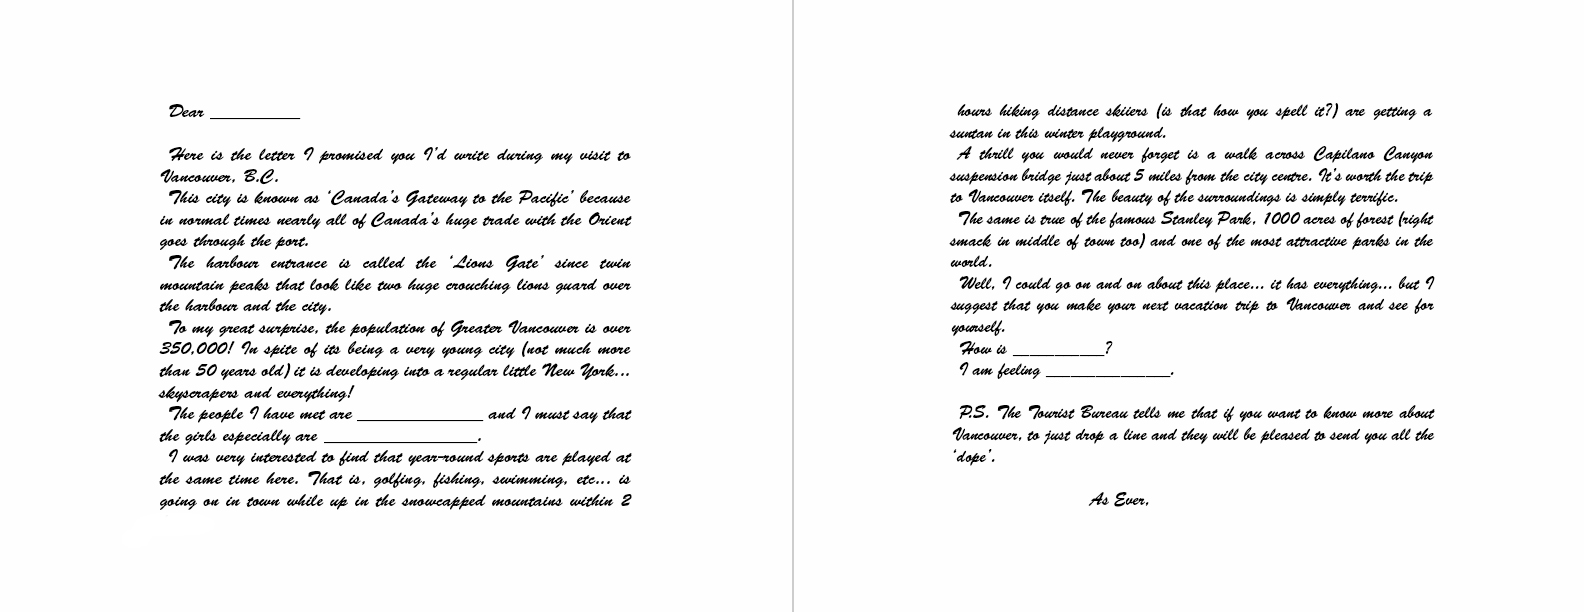 Dear __________
Here is the letter I promised you I'd write during my visit to
Vancouver, B.C.
This city is known as 'Canada's Gateway to the Pacific' because
in normal times nearly all of Canada's huge trade with the Orient
goes through the port.
The harbour entrance is called the 'Lions Gate' since twin
mountain peaks that look like two huge crouching lions guard over
the harbour and the city.
To my great surprise, the population of Greater Vancouver is over
350,000! In spite of its being a very young city (not much more
than 50 years old) it is developing into a regular little New York...
skyscrapers and everything!
The people I have met are ______________ and I must say that
the girls especially are _________________.
I was very interested to find that year-round sports are played at
the same time here. That is, golfing, fishing, swimming, etc... is
going on in town while up in the snowcapped mountains within 2
hours hiking distance skiiers (is that how you spell it?) are getting a
suntan in this winter playground.
A thrill you would never forget is a walk across Capilano Canyon
suspension bridge just about 5 miles from the city centre. It's worth the trip
to Vancouver itself. The beauty of the surroundings is simply terrific.
The same is true of the famous Stanley Park, 1000 acres of forest (right
smack in middle of town too) and one of the most attractive parks in the
world.
Well, I could go on and on about this place... it has everything... but I
suggest that you make your next vacation trip to Vancouver and see for
yourself.
How is ___________?
I am feeling _______________.
P.S. The Tourist Bureau tells me that if you want to know more about
Vancouver, to just drop a line and they will be pleased to send you all the
'dope'.
As Ever,